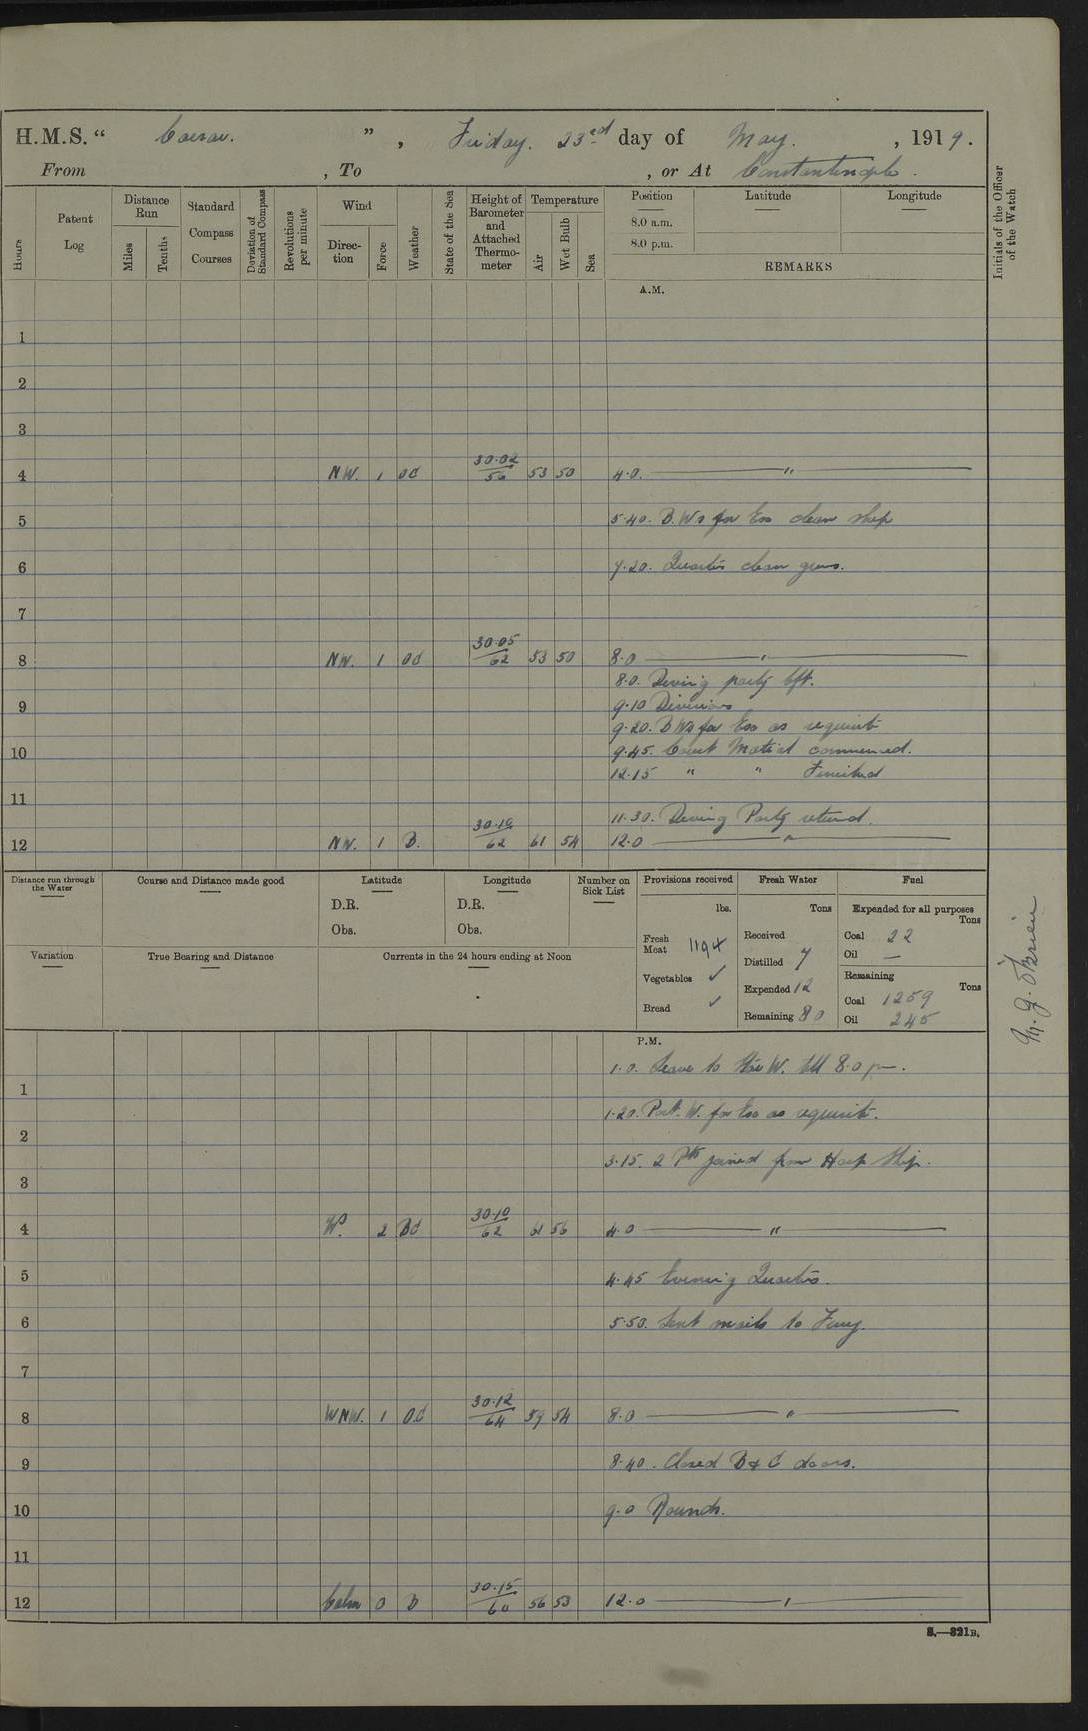 H.M.S. " Caesar. " , Friday. 23rd day of May. , 1919.
From , To , or At Constantinople.
Hours
Patent Log
Distance Run
Miles
Tenths
Standard Compass Courses
Deviation of Standard Compass
Revolutions per minute
Wind
Direction
Force
Weather
State of the Sea
Height of Barometer and Attached Thermometer
Temperature
Air
Wet Bulb
Sea
Position
8.0 a.m.
8.0 p.m.
Latitude
Longitude
REMARKS
Initials of the Officer of the Watch
A.M.
1
2
3
4 NW. 1 OC 30.02/56 53 50 4.0. "
5 5.40. B.Ws for Exs clean ship
6 7.20. Quarters clean guns.
7
8 NW. 1 OC 30.05/62 53 50 8.0 "
8.0. Diving party left.
9 9.10 Divisions
9.20. B Ws for Exs as requisite
10 9.45. Court Martial commenced.
12.15 " " Finished
11 11.30. Diving Party returned.
12 NW. 1 B. 30.10/62 61 54 12.0 "
Distance run through the Water
Course and Distance made good
Latitude
D.R.
Obs.
Longitude
D.R.
Obs.
Number on Sick List
Provisions received
lbs.
Fresh Meat 1194
Vegetables ✓
Bread ✓
Fresh Water
Tons
Received
Distilled 7
Expended 12
Remaining 80
Fuel
Expended for all purposes
Tons
Coal 22
Oil —
Remaining
Tons
Coal 1259
Oil 245
Variation
True Bearing and Distance
Currents in the 24 hours ending at Noon
M. J. O'Brien
P.M.
1.0. Leave to W. till 8.0 pm.
1
1.20. Port. W. for Exs as requisite.
2
3.15. 2 Pts joined from Hosp Ship.
3
4 2 BC 30.10/62 61 56 4.0 "
5 4.45 Evening Quarters.
6 5.50. Sent mails to Fury.
7
8 WNW. 1 O.C 30.12/64 59 54 8.0 "
9 8.40. Closed B & C doors.
10 9.0 Rounds.
11
12 Calm 0 B 30.15/60 56 53 12.0 "
S.—321B.